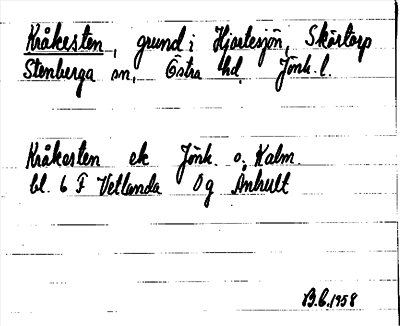 Kråkesten, grund i Hjortesjön, Skörtorp
Stenberga sn, Östra hd, Jönk. l.
Kråkesten ek Jönk. o. Kalm.
bl. 6 F Vetlanda Og Änhult
B.C. 1958